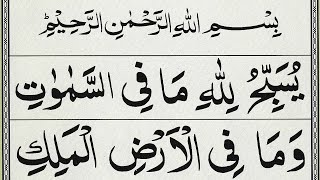 بِسْمِ اللهِ الرَّحْمٰنِ الرَّحِيْمِ
يُسَبِّحُ لِلّٰهِ مَا فِي السَّمٰوٰتِ
وَمَا فِي الْاَرْضِ الْمَلِكِ